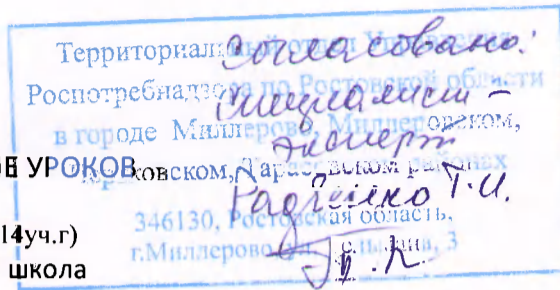 Территориальный отдел Управления
Роспотребнадзора по Ростовской области
в городе Миллерово, Миллеровском,
ковском, Тарасовском районах
346130, Ростовская область,
г.Миллерово 3
Согласовано:
специалист -
эксперт
Т.И.
УРОКОВ
14уч.г)
школа